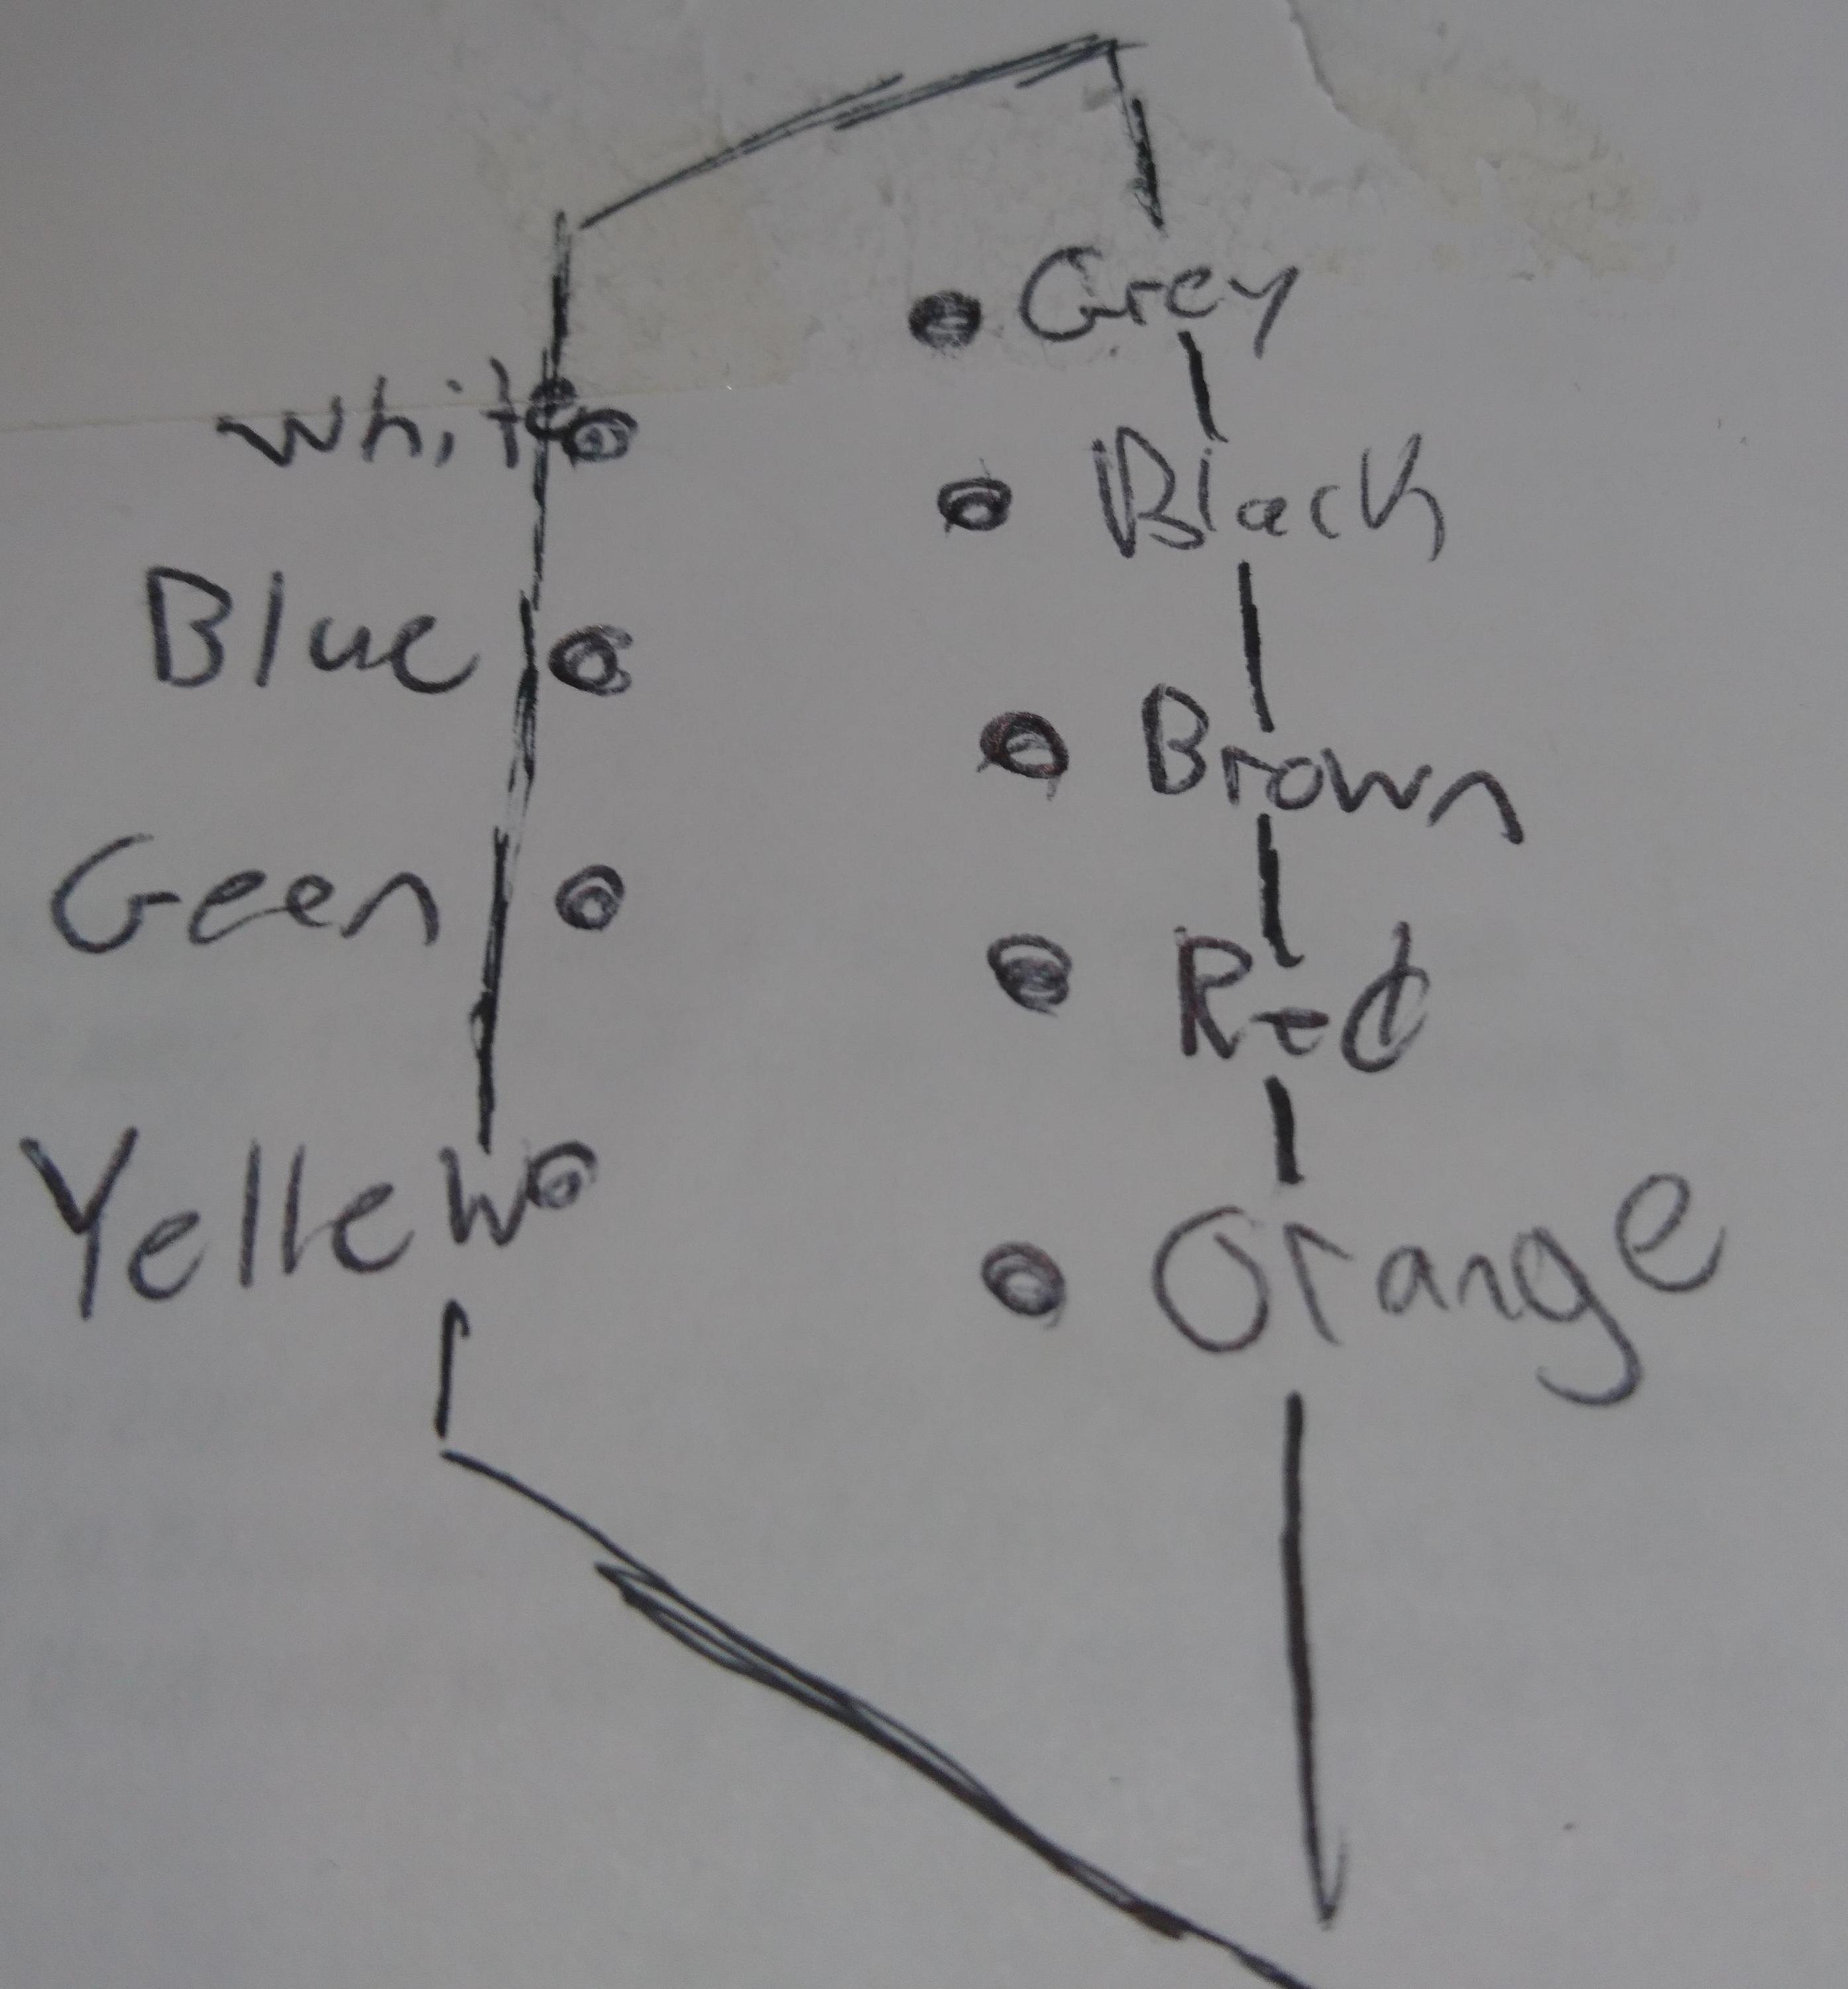 White
Blue
Geen
Yellew
Grey
Black
Brown
Red
Orange